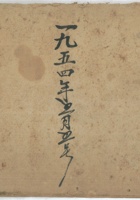 一九五四年五月五号